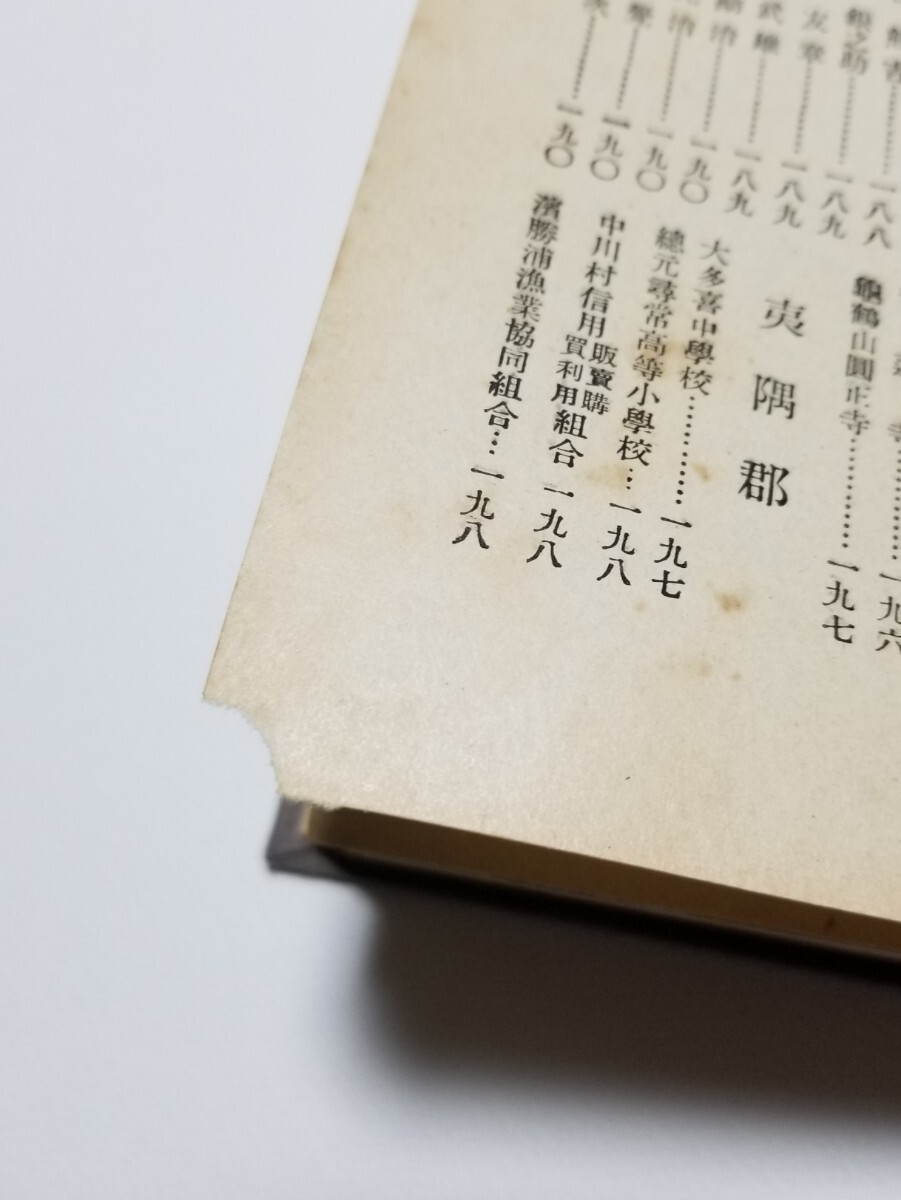 一八八
銀之助………一八九
友章………一八九
武雄………一八九
治………一九〇
治………一九〇
一九〇
一九〇
寺…………一九六
龜鶴山圓正寺…………一九七
夷隅郡
大多喜中學校…………一九七
總元尋常高等小學校…一九八
中川村信用販賣購買利用組合 一九八
濱勝浦漁業協同組合…一九八